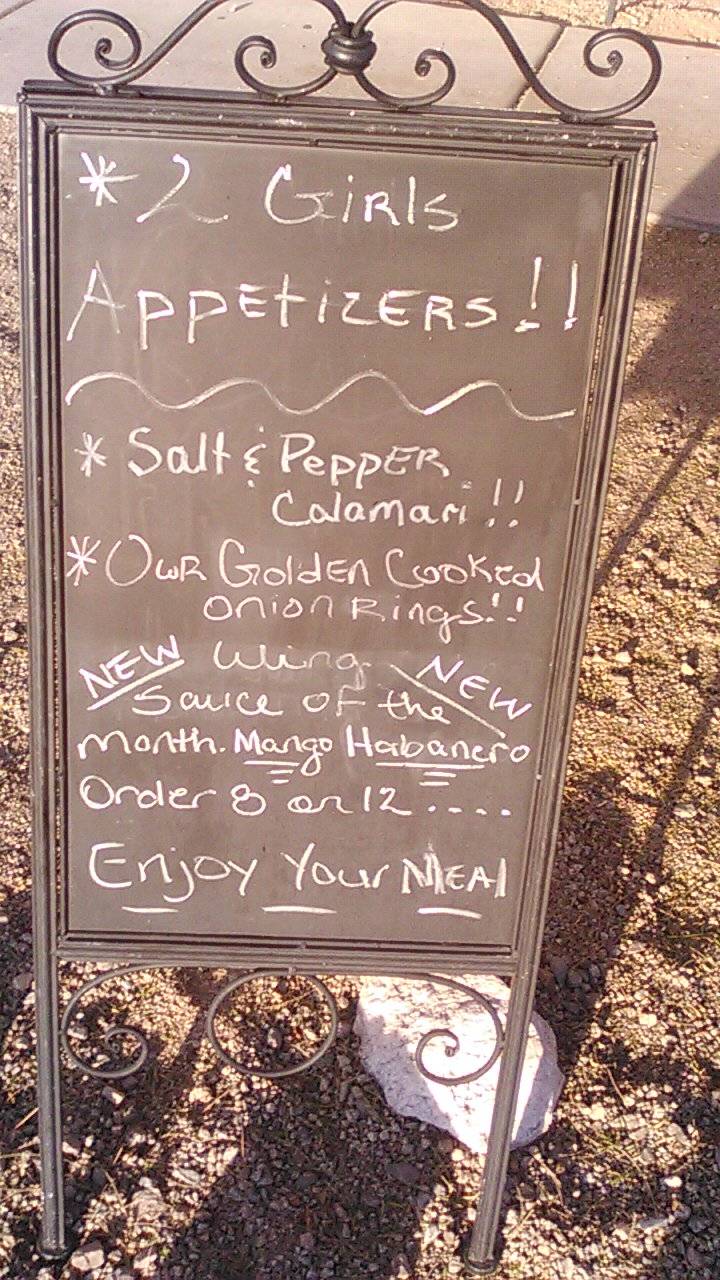 * 2 GiRls
APPEtizERS!!
* Salt & PEPPER
Calamari!!
* OuR GoldEN Cooked
onion Rings!!
NEW Wing NEW
Sauce of the
month. Mango Habanero
Order 8 or 12 ....
Enjoy Your MEAl